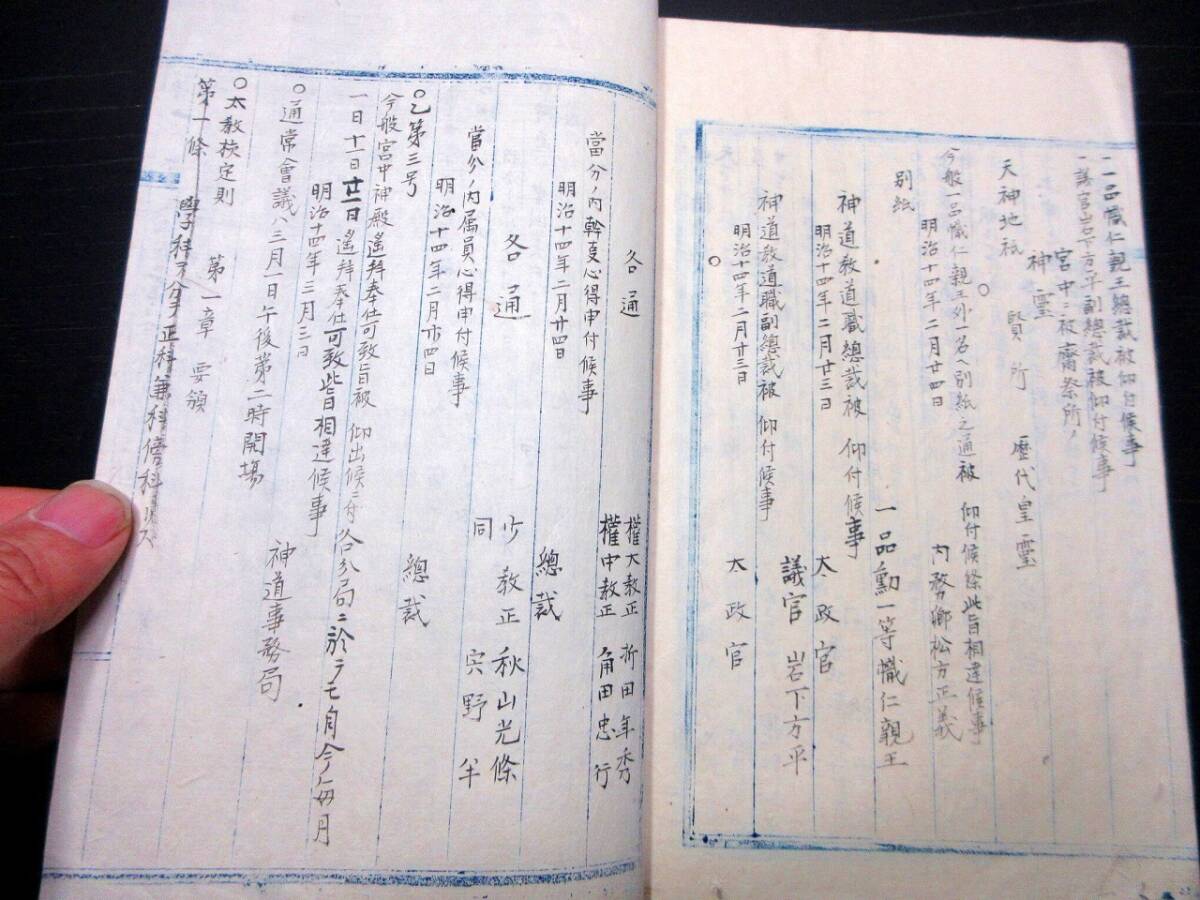 一一品幟仁親王總裁被仰付候事
一議官岩下方平副總裁被仰付候事
宮中ニ被齋祭所ノ
神靈
天神地祇 賢所 歷代皇靈
○
今般一品幟仁親王外一名ヘ別紙之通被 仰付候條此旨相達候事
明治十四年二月廿四日 內務卿松方正義
別紙
一品勳一等幟仁親王
神道教道職總裁被 仰付候事
明治十四年二月廿三日 太政官
議官 岩下方平
神道教道職副總裁被 仰付候事
明治十四年二月廿三日 太政官
○
權大教正 折田年秀
各通
權中教正 角田忠行
當分ノ內幹事心得申付候事
明治十四年二月廿四日 總裁
少教正 秋山光條
各通
同 宍野半
當分ノ內属員心得申付候事
明治十四年二月廿四日 總裁
○乙第三号
今般宮中神殿遙拜奉仕可致旨被 仰出候ニ付各分局ニ於テモ自今毎月
一日十一日廿一日遙拜奉仕可致此旨相達候事
明治十四年三月三日 神道事務局
○通常會議ハ三月一日午後第二時開場
○大教校定則
第一章 要領
第一條 學科ヲ分テ正科兼科傍科トス